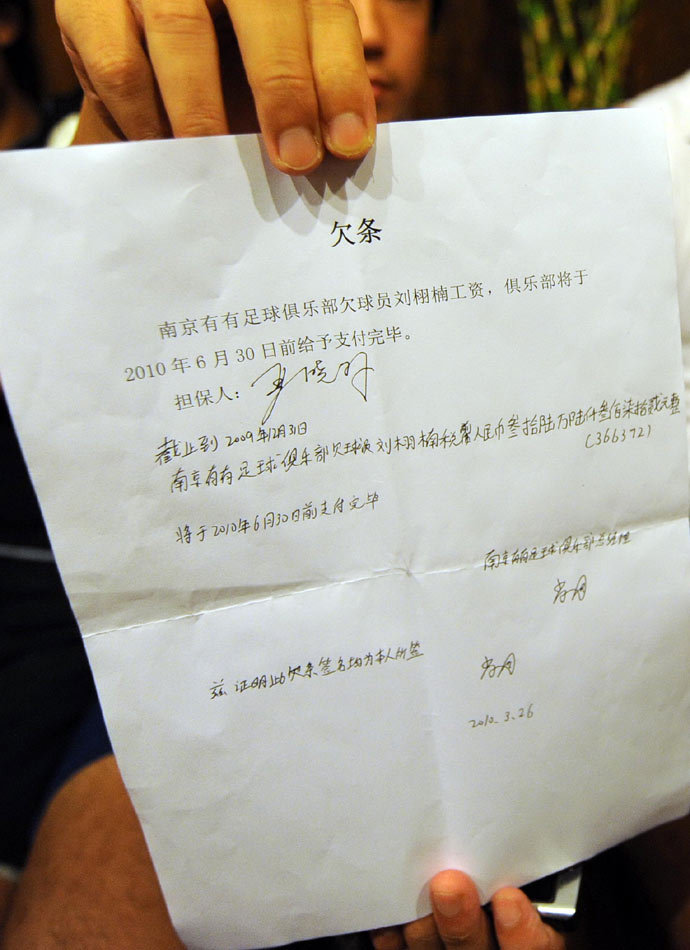 欠条
南京有有足球俱乐部欠球员刘栩楠工资，俱乐部将于
2010年6月30日前给予支付完毕。
担保人：
截止到2009年12月31日
南京有有足球俱乐部欠球员刘栩楠税後人民币叁拾陆万陆仟叁佰柒拾贰元整
(366372)
将于2010年6月30日前支付完毕
南京有有足球俱乐部总经理
兹证明此欠条签名均为本人所签
2010.3.26